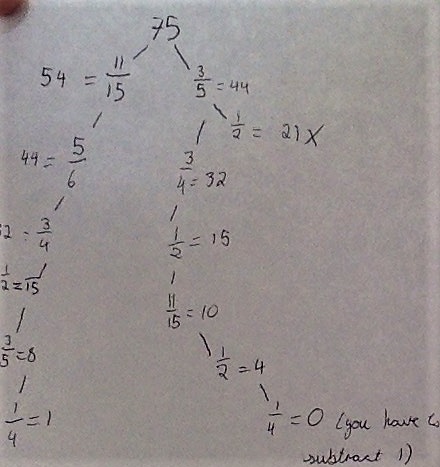 75
54 = 11/15
3/5 = 44
1/2 = 21 X
44 = 5/6
3/4 = 32
2 = 3/4
1/2 = 15
1/2 = 15
11/15 = 10
3/5 = 8
1/2 = 4
1/4 = 1
1/4 = 0 (you have to
subtract 1)